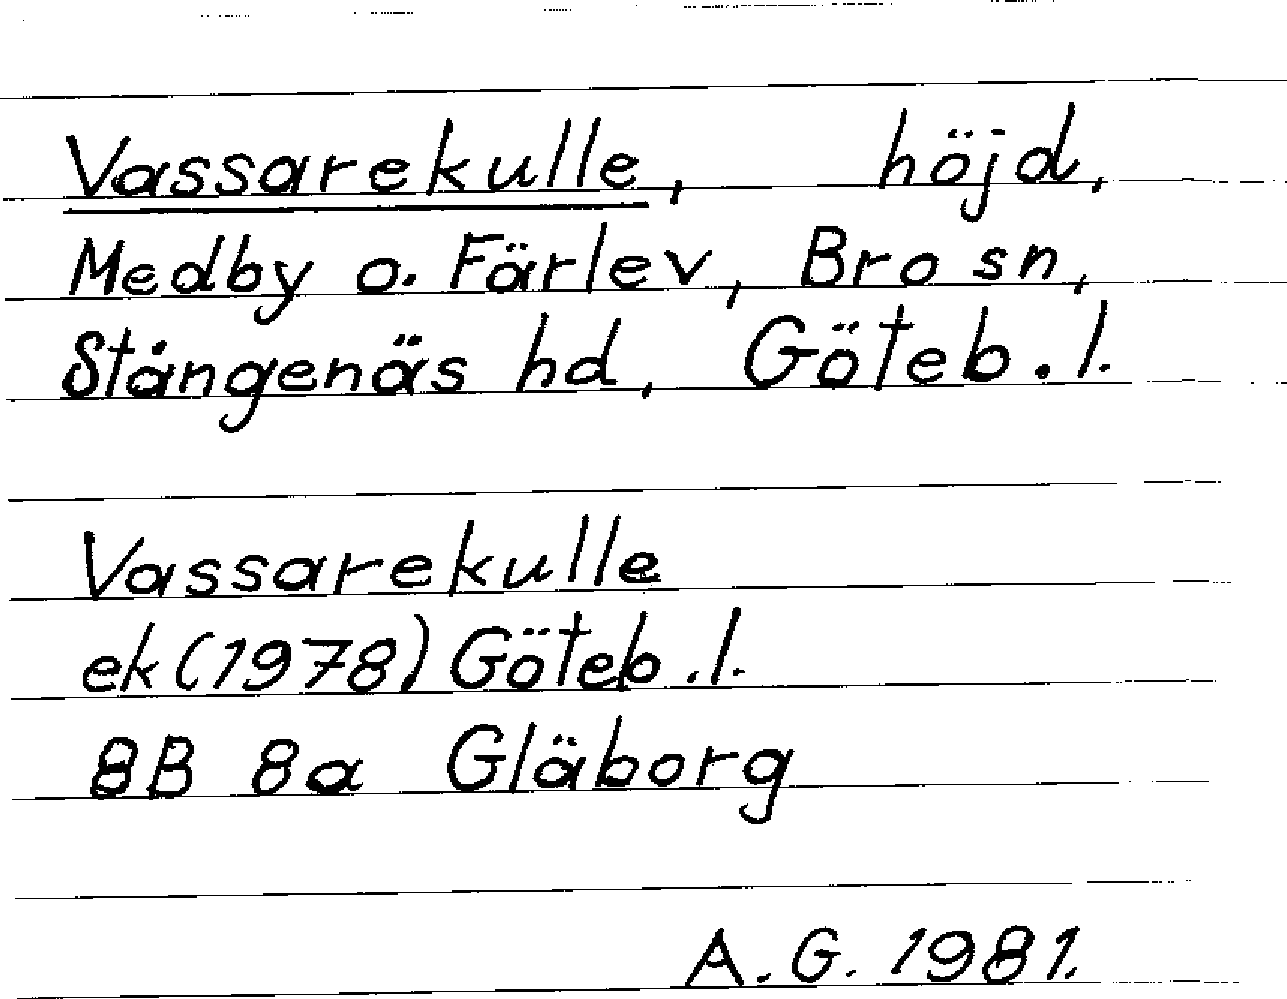 Vassarekulle, höjd,
Medby o. Färlev, Bro sn,
Stångenäs hd, Göteb. l.
Vassarekulle
ek (1978) Göteb. l.
8B 8a Gläborg
A. G. 1981.